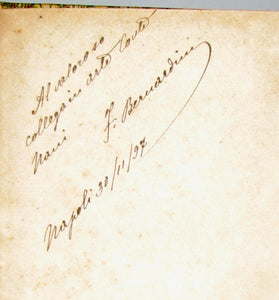 Al valoroso
collega in arte Conte
Nani
F. Bernardini
Napoli 30/11/97